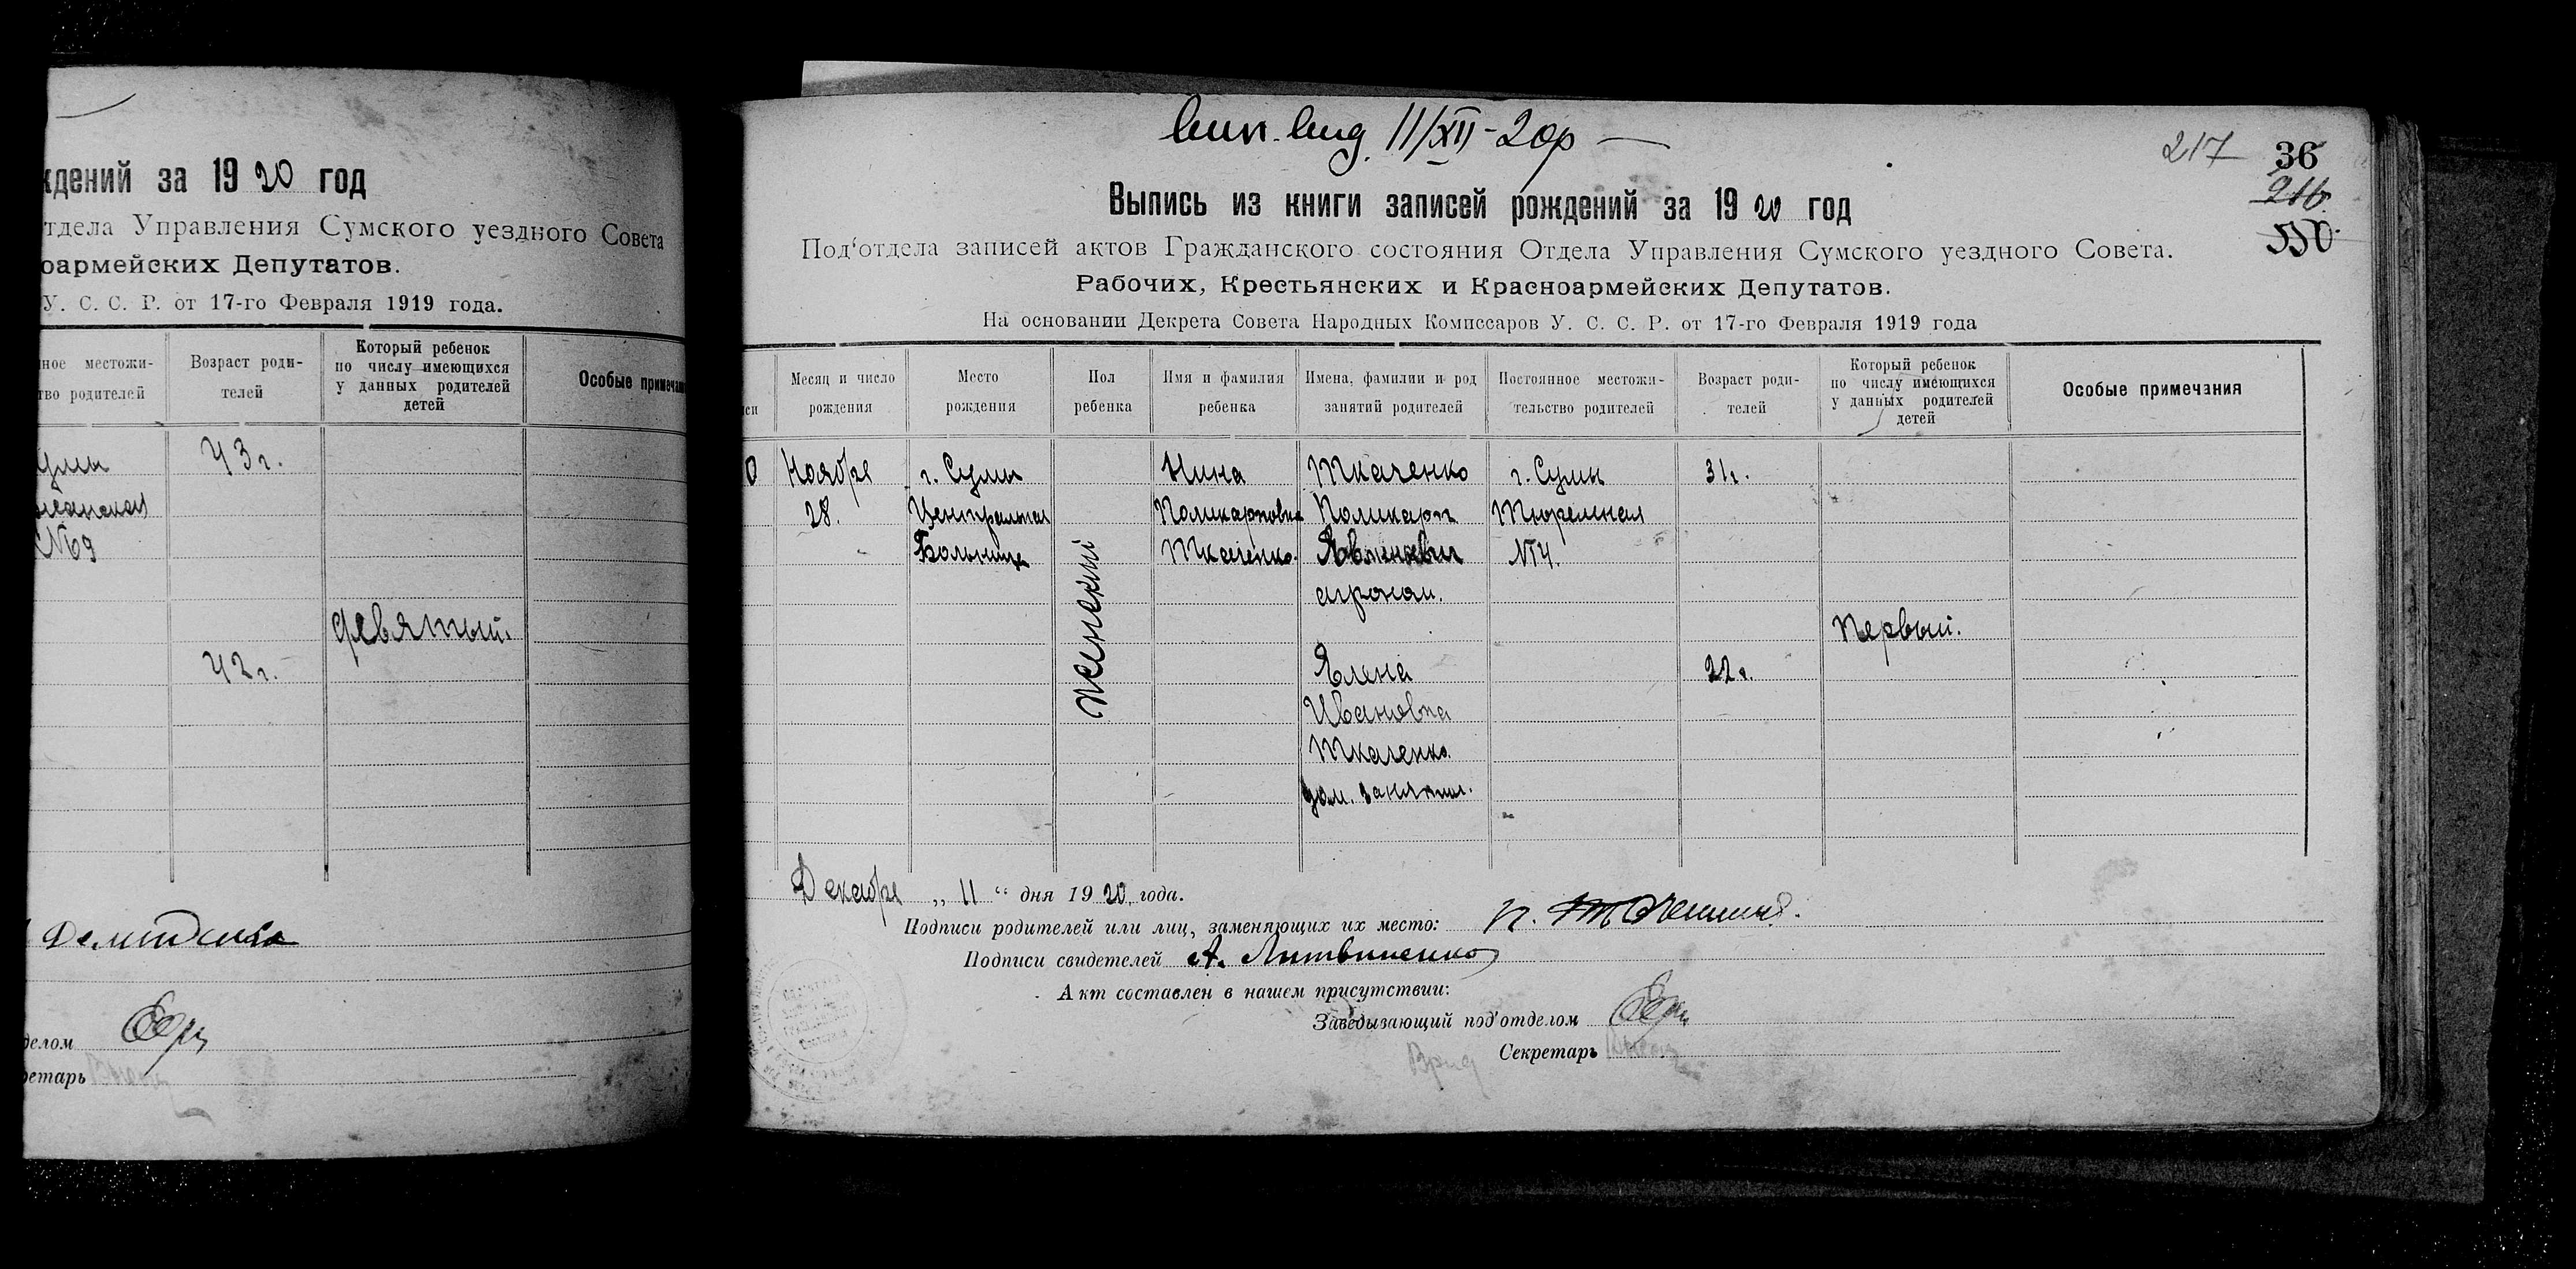 ждений за 1920 год
тдела Управления Сумского уездного Совета
оармейских Депутатов.
У. С. С. Р. от 17-го Февраля 1919 года.
ное местожи-
тво родителей
Возраст роди-
телей
Который ребенок
по числу имеющихся
у данных родителей
детей
Особые примечан
умы
43 г.
№69
девятый.
42 г.
делом
ретарь
11/XII-20р
217
36
216
550
Выпись из книги записей рождений за 1920 год
Под‘отдела записей актов Гражданского состояния Отдела Управления Сумского уездного Совета.
Рабочих, Крестьянских и Красноармейских Депутатов.
На основании Декрета Совета Народных Комиссаров У. С. С. Р. от 17-го Февраля 1919 года
си
Месяц и число
рождения
Место
рождения
Пол
ребенка
Имя и фамилия
ребенка
Имена, фамилии и род
занятий родителей
Постоянное местожи-
тельство родителей
Возраст роди-
телей
Который ребенок
по числу имеющихся
у данных родителей
детей
Особые примечания
0 Ноября г. Сумы Нина Ткаченко г. Сумы 31г.
28. Центральная Поликарповна Поликарп Тюремная
Больница Ткаченко. №4.
женский
агроном.
Первый.
Елена 22 г.
Ивановна
Ткаченко.
дом. занятия.
Декабря „ 11 “ дня 1920 года.
Подписи родителей или лиц, заменяющих их место: П.
Подписи свидетелей А. Литвиненко
Акт составлен в нашем присутствии:
Заведывающий под‘отделом
Секретарь
Врид